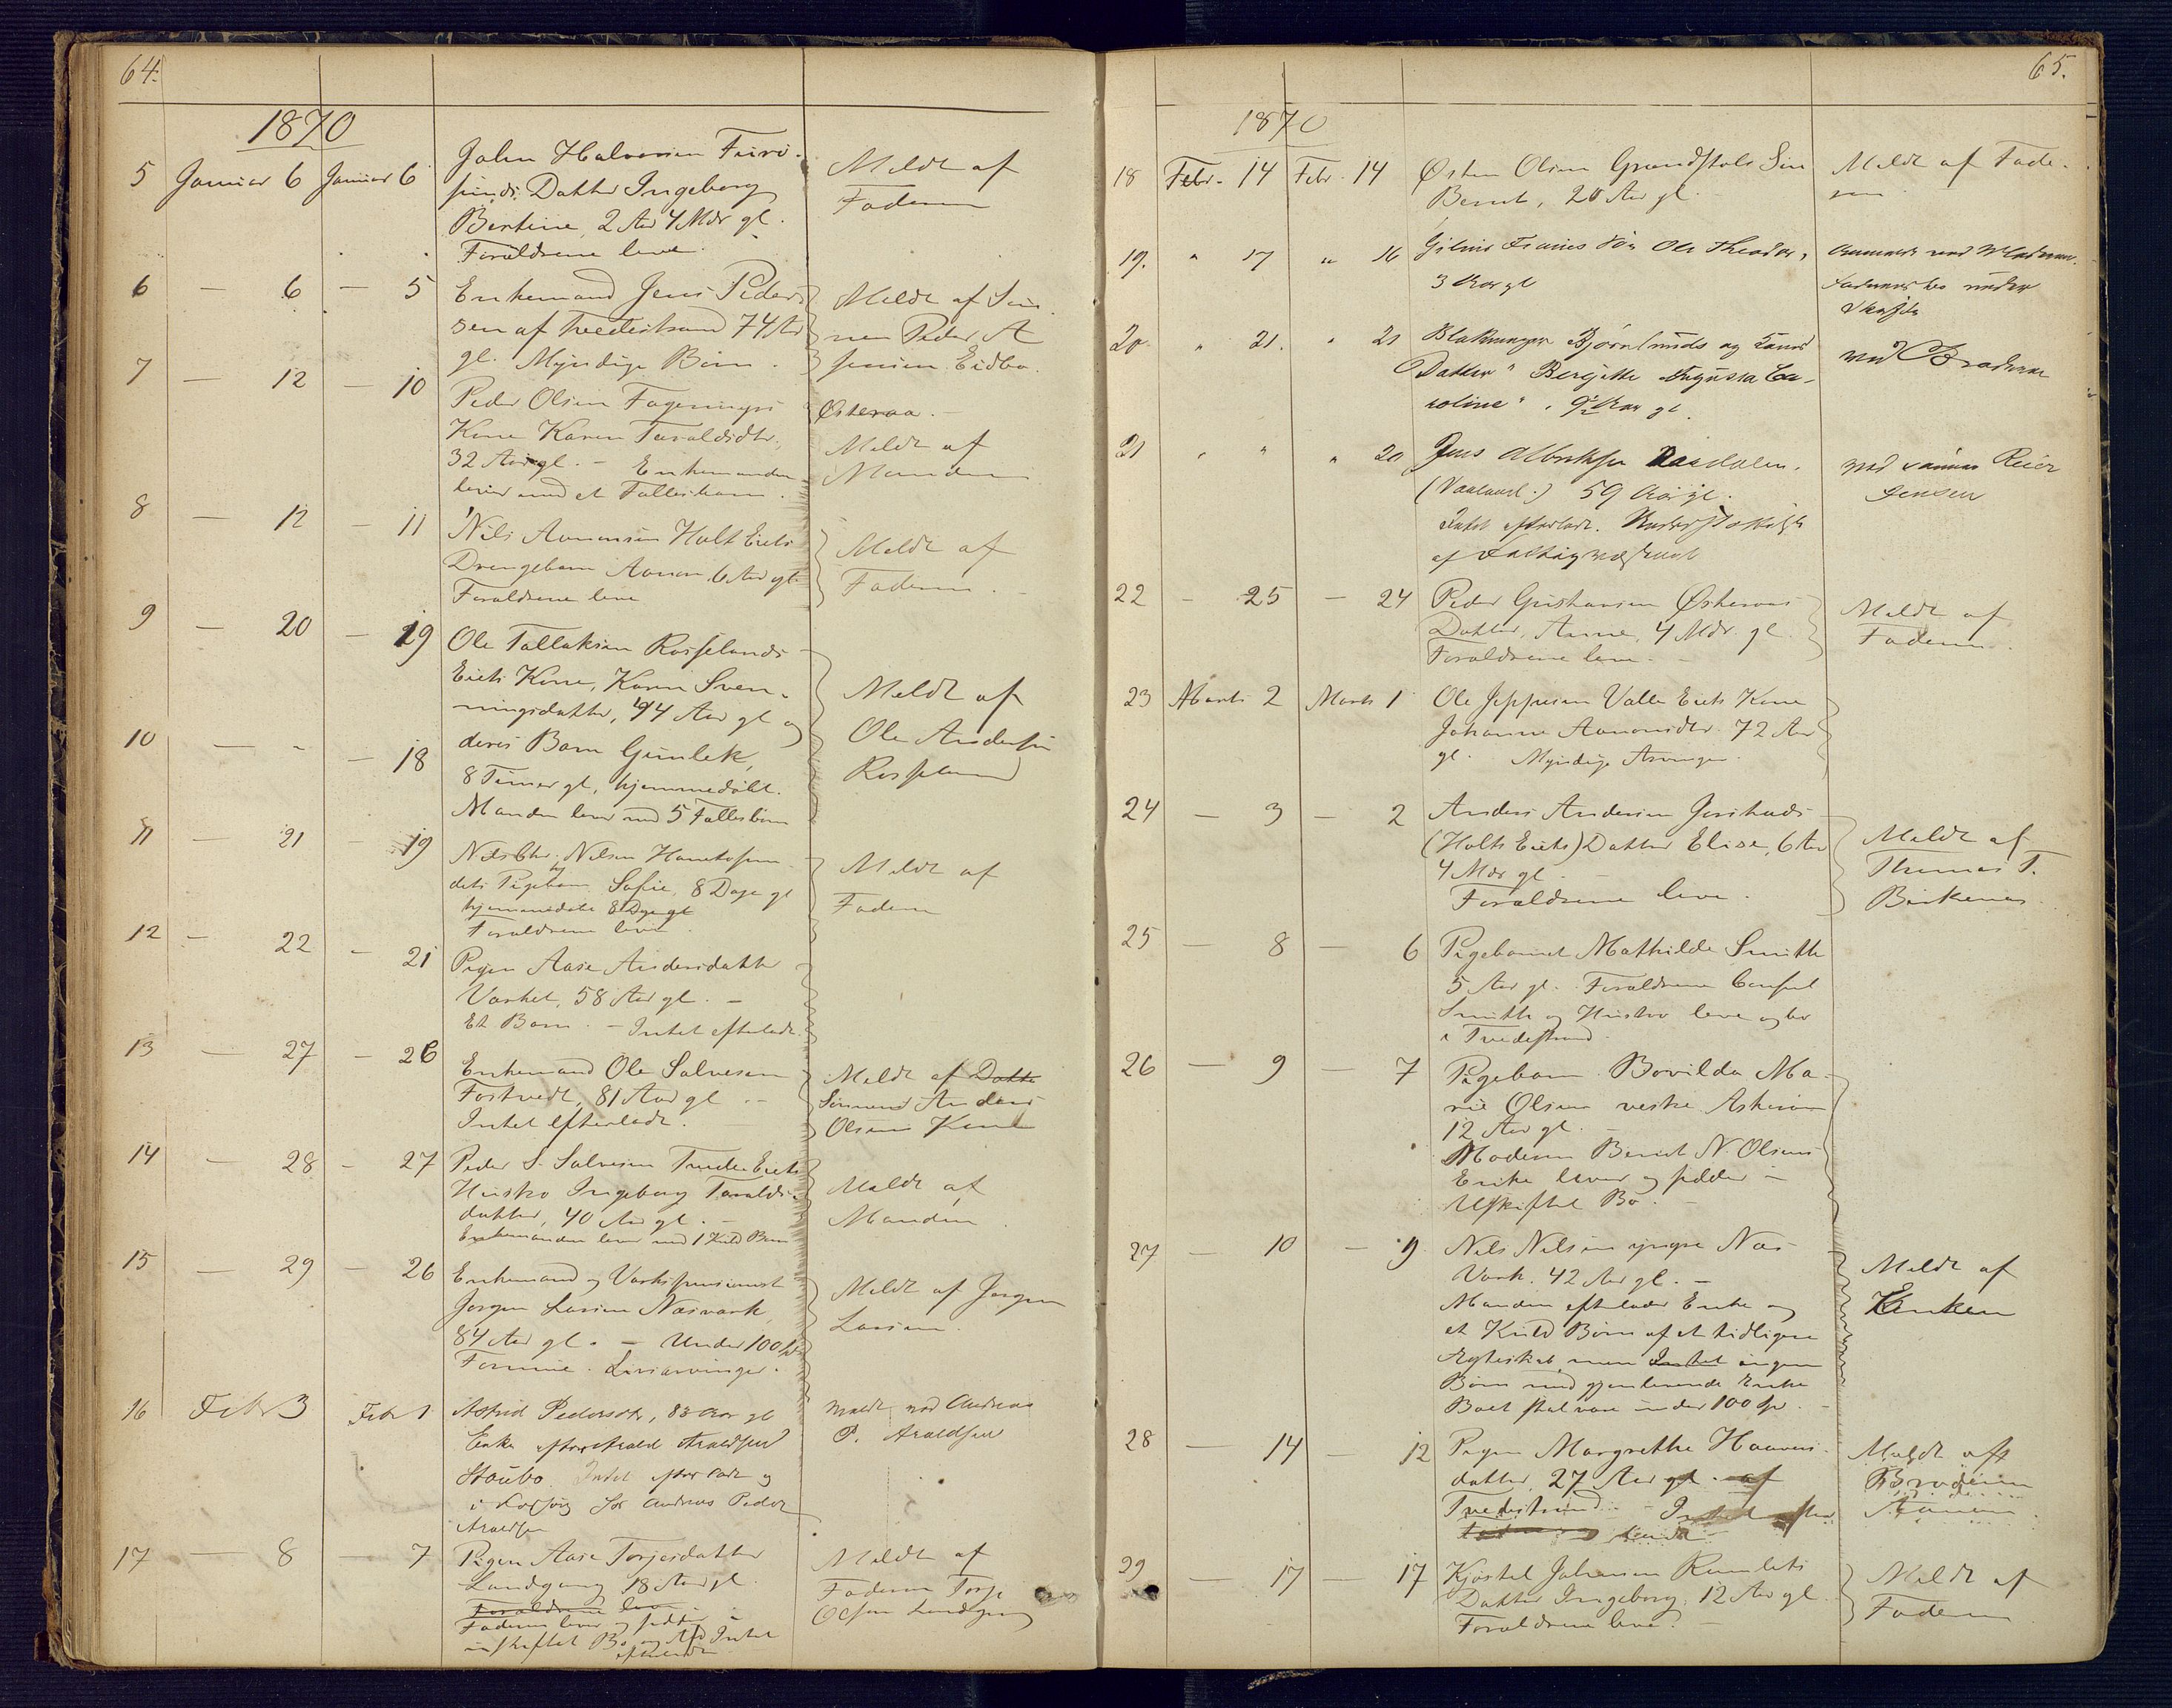 64.
1870
5 Januar 6 Januar 6 John Halvorsen Furø-
sunds Datter Ingeborg
Bertine, 2 Aar 4 Mdr gl.
Forældrene leve.
Meldt af
Faderen
6 — 6 — 5 Enkemand Jens Peder-
sen af Tvedestrand 74 Aar
gl. Myndige Børn.
Meldt af Søn
nen Peder A
Jensen Eidbo.
Østeraa.
7 — 12 — 10 Peder Olsen
Kone Karen Taraldsdtr.
32 Aar gl. — Enkemanden
lever med et Fællesbarn.
Meldt af
Manden
8 — 12 — 11 Nils Aanonsen Holt Eiets
Drengebarn Aanon, 6 Aar gl.
Forældrene leve
Meldt af
Faderen.
9 — 20 — 19 Ole Tallaksen Rosselands
Eiets Kone, Karen Sven-
ningsdatter, 44 Aar gl og
10 — - — 18 deres Barn Gunlek,
8 Timer gl, hjemmedøbt.
Manden lever med 5 Fællesbørn
Meldt af
Ole Andersen
Rosseland
11 — 21 — 19 Nils Chr. Nilsen
dets Pigebarn Sofie, 8 Dage gl
hjemmedøbt 8 Dge gl
Forældrene leve.
Meldt af
Faderen
12 — 22 — 21 Pigen Aase Andersdatter
Vasket, 58 Aar gl. —
Et Barn. — Intet efterladt.
13 — 27 — 26 Enkemand Ole Salvesen
Fostvedt, 81 Aar gl. —
Intet efterladt.
Meldt af Datte
Sønnen Anders
Olsen
14 — 28 — 27 Peder S. Salvesen Tvede Eiets
Hustro Ingeborg Taralds-
datter, 40 Aar gl. —
Enkemanden lever med 1 Kuld Børn
Meldt af
Manden
15 — 29 — 26 Enkemand og Værkspensionist
Jørgen Larsen Næsværk,
84 Aar gl. — Under 100 Spd
Formue. Livsarvinger.
Meldt af Jørgen
Larsen
16 Febr 3 Febr 1 Astrid Pedersdtr, 83 Aar gl
Enke efter Arald Araldsen
Staubo. Intet efterladt og
i Forsørg hos Andreas Peder
Araldsen
Meldt ved Andreas
P. Araldsen
17 — 8 — 7 Pigen Aase Torjesdatter
Landgang 18 Aar gl.
Forældrene leve
Faderen lever og sidder i
uskiftet Bo og Afd Intet
efterladt
Meldt af
Faderen Torje
Olsen Landgang
65.
1870
18 Febr. 14 Febr. 14 Østen Olsen Grandstøls Søn
Berent, 20 Aar gl.
Meldt af Fade-
ren
19. " 17 " 16 Ole Theodor,
3 Aar gl
Faderens Bo under
Skifte
20 " 21. " 21 Bjørnlunds og Kones
Datter "Bergitte Augusta Ca-
roline", 9½ Aar gl.
ved Broderen
21 " " " 20 Jens Albrektsen
59 Aar gl.
Intet efterladt. Understøttet
af Fattigvæsenet
ved Sønnen Reier
Jensen
22 — 25 — 24 Peder Gustavsen Østeraas
Datter, Anne, 4 Mdr. gl.
Forældrene leve. —
Meldt af
Faderen.
23 Marts 2 Marts 1 Ole Jeppesen Valle Eiets Kone
Johanne Aanonsdtr. 72 Aar
gl. Myndige Arvinger.
24 — 3 — 2 Anders Andersen
(Holts Eiets) Datter Elise, 6 Aar
4 Mdr gl. —
Forældrene leve.
Meldt af
Thomas T.
Birkenes.
25 — 8 — 6 Pigebarnet Mathilde Smith
5 Aar gl. Forældrene Consul
Smith og Hustro leve og bo
i Tvedestrand.
26 — 9 — 7 Pigebarn Bovilda Ma-
rie Olsen vestre Askerøen
12 Aar gl. —
Moderen Berent N. Olsens
Enke lever og sidder i
Uskiftet Bo. —
27 — 10 — 9 Nils Nilsen yngre Næs
Værk. 42 Aar gl. —
Manden efterlader Enke og
et Kuld Børn af et tidligere
Ægteskab, men Intet ingen
Børn med gjenlevende Enke
Boet skal være under 100 Spd.
Meldt af
Enken
28 — 14 — 12 Pigen Margrethe Haavers-
datter, 27 Aar gl. af
Tvedestrand. — Intet efter
Meldt af
Broderen
29 — 17 — 17 Kjøstel Johansen Ramlets
Datter Ingeborg, 12 Aar gl.
Forældrene leve. —
Meldt af
Faderen